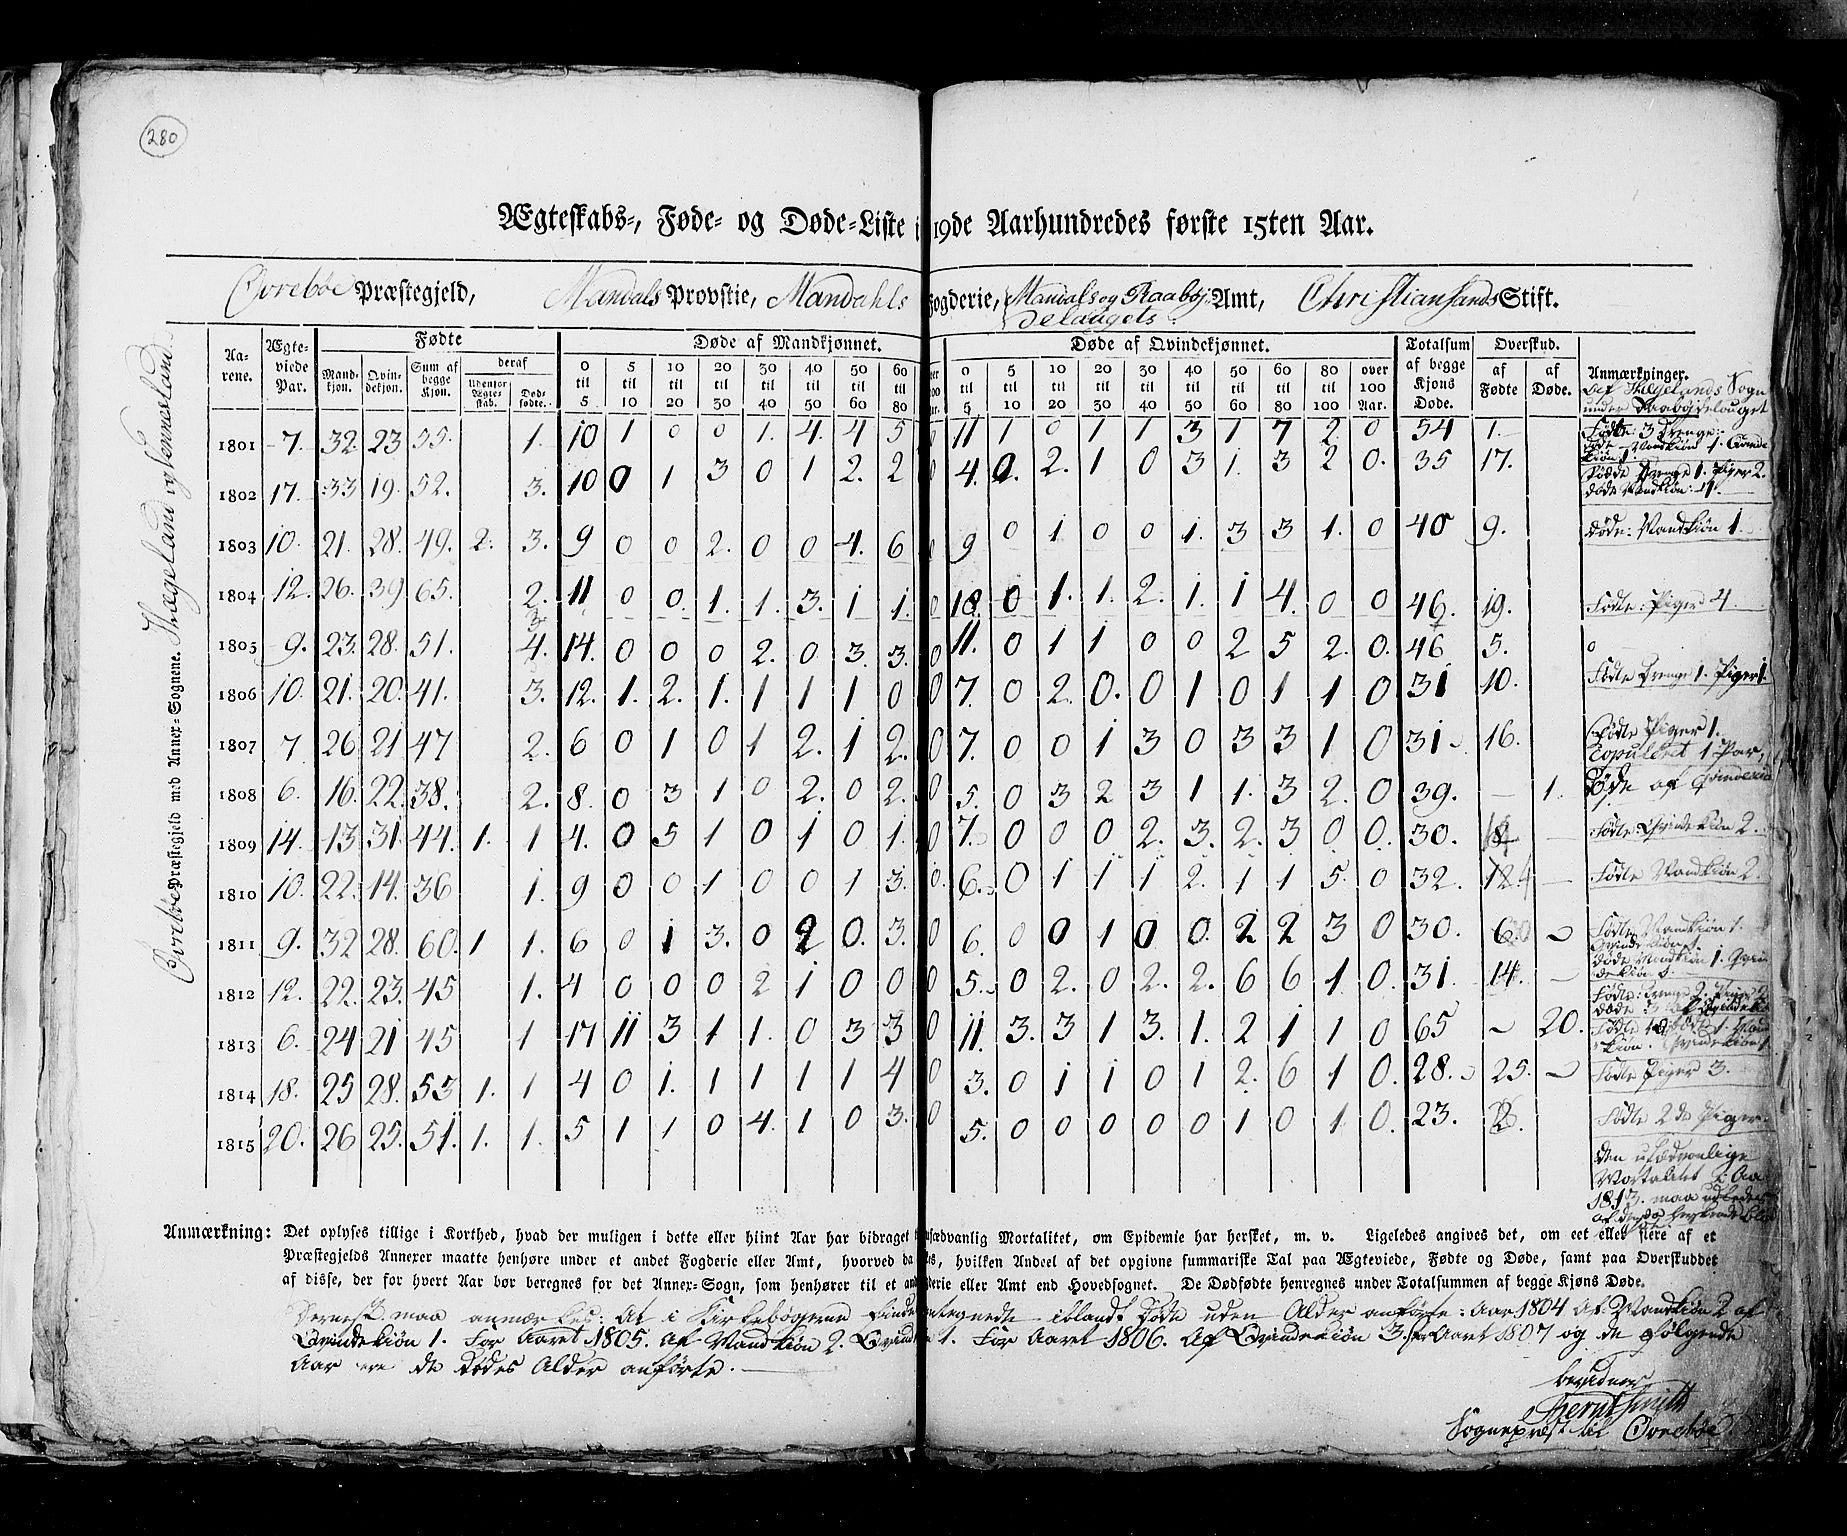 280
Ægteskabs-, Føde- og Døde-Liste i 19de Aarhundredes første 15ten Aar.
Øvreböe Præstegjeld, Mandals Provstie, Mandahls Fogderie, Mandals og Raaboj Amt, Christiansands Stift.
delaugets
Øvreböe Præstegjeld med Annex-Sognene. Hægeland og Vennesland
Aa- Ægte- Fødte Døde af Mandkjønnet. Døde af Qvindekjønnet. Totalsum Overskud.
rene. viede Mand- Qvin- Sum af deraf af begge af af Anmærkninger.
Par. kjøn. dekjøn. begge Udenfor Død- Kjøns Fødte Døde. Af Hægelands Sogn
Kjøn. Ægte- fødte. Døde. under Raabojdelauget
skab.
0 til 5 5 til 10 10 til 20 20 til 30 30 til 40 40 til 50 50 til 60 60 til 80 0 til 5 5 til 10 10 til 20 20 til 30 30 til 40 40 til 50 50 til 60 60 til 80 80 til 100 over 100 Aar.
1801 7. 32. 23 55. 1. 10 1 0 0 1. 4. 4 5 0 11 1 0 1 1 3 1 7 2. 0 54 1. Fødte: 3 Drenge:
1802 17. 33 19. 52. 3. 10 0 1 3 0 1 2. 2 0 4. 0. 2. 1 0 3 1. 3 2 0. 35 17. Fødde Drenge 1. Piger 2.
døde Mandkiøn: 1.
1803 10. 21. 28. 49. 2. 3. 9 0 0 2. 0 0 4. 6 0 9 0 1 0 0 1. 3 3 1. 0 40 9. døde: Mandkiøn 1.
1804 12. 26. 39 65. 2. 11 0 0. 1. 1. 3. 1 1. 0 18. 0 1. 1. 2. 1. 1 4. 0 0 46. 19. Fødte: Piger 4.
1805 9. 23. 28. 51. 4. 14. 0 0 0 2. 0 3. 3. 0 11. 0 1 1 0 0 2 5 2. 0. 46 5. 0
1806 10. 21. 20. 41. 3. 12. 1. 2. 1. 1 1 1 0 0 7. 0 2. 0. 0 1 0 1 1 0 31 10. Fødte Drenge 1. Piger 1.
1807 7 26 21 47 2. 6 0 1 0 1 2. 1 2. 0 7. 0 0 1 3 0 3 3 1 0 31 16. Fødte Piger 1.
Copuleret 1 Par,
1808 6. 16. 22. 38. 2. 8. 0 3 1 0 2. 0 2. 0 5. 0 3 2 3 1 1. 3 2. 0 39. — 1. Døde af
1809 14. 13. 31. 44. 1. 1 4. 0 5 1 0 1 0 1. 0 7. 0 0 0 2. 3. 2. 3 0 0. 30. — Fødte Qvindekiøn 2.
1810 10. 22. 14. 36 1. 9 0 0 1 0 0 1 3. 0. 6. 0 1 1 1 2. 1 1 5. 0 32. — Fødte Mandkiøn 2.
1811 9. 32 28. 60. 1 1. 6 0 1 3. 0 2 0. 3. 0 6. 0 0 1 0 0. 2 2 3 0 30. Fødte Mandkiøn 1.
Qvindekiøn 1.
døde Mandkiøn 1.
1812 12. 22. 23. 45 1. 4 0 0 0 2 1 0 0 0 5. 0 2. 0 2. 2. 6 6 1 0. 31. 14. —
1813 6. 24 21 45 1 17 11 3 1 1. 0 3 3 0 11. 3. 3 1 3. 1. 2 1 1 0 65 — 20.
1814 18. 25 28. 53 1. 1 4 0 1. 1 1 1 1 4 0 3. 0 1 1 0 1 2. 6 1 0. 28. 25. — Fødte Piger 3.
1815 20. 26 25. 51. 1. 1. 5 1 1 0 4. 1 0 3. 0 5. 0 0 0 0 0 1 0 1 0. 23. Fødte 2de Piger.
Den usædvanlige
Mortalitet i Aa
1813. maa
Anmærkning: Det oplyses tillige i Korthed, hvad der muligen i dette eller hiint Aar har bidraget usædvanlig Mortalitet, om Epidemie har hersket, m. v. Ligeledes angives det, om eet eller flere af et
Præstegjelds Annexer maatte henhøre under et andet Fogderie eller Amt, hvorved da hvilken Andeel af det opgivne summariske Tal paa Ægteviede, Fødte og Døde, samt paa Overskuddet
af disse, der for hvert Aar bør beregnes for det Annex-Sogn, som henhører til et andet Fogderie eller Amt end Hovedsognet. De Dødfødte henregnes under Totalsummen af begge Kjøns Døde.
maa anmærkes: at i Kirkebøgerne findes antegnede iblandt Døde uden Alder anførte: Aar 1804 Af Mandkiøn 2 af
Qvindekiøn 1. For Aaret 1805. Af Mandkiøn 2. Qvindek 1. For Aaret 1806. Af Qvindekiøn 3. for Aaret 1807 og de følgende
Aar ere de Dødes Alder anførte. —
bevidner
Bernt Smith
Sognepræst til Øvrebøe